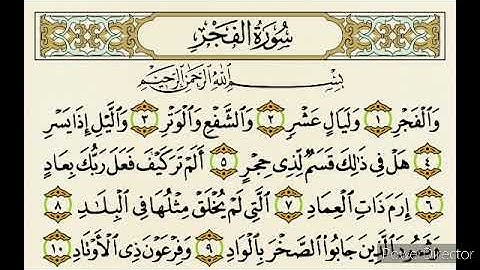 سُورَةُ الْفَجْرِ
بِسْمِ اللَّهِ الرَّحْمَٰنِ الرَّحِيمِ
وَالْفَجْرِ ١ وَلَيَالٍ عَشْرٍ ٢ وَالشَّفْعِ وَالْوَتْرِ ٣ وَاللَّيْلِ إِذَا يَسْرِ
٤ هَلْ فِي ذَٰلِكَ قَسَمٌ لِّذِي حِجْرٍ ٥ أَلَمْ تَرَ كَيْفَ فَعَلَ رَبُّكَ بِعَادٍ
٦ إِرَمَ ذَاتِ الْعِمَادِ ٧ الَّتِي لَمْ يُخْلَقْ مِثْلُهَا فِي الْبِلَادِ ٨
وَثَمُودَ الَّذِينَ جَابُوا الصَّخْرَ بِالْوَادِ ٩ وَفِرْعَوْنَ ذِي الْأَوْتَادِ ١٠
PowerDirector